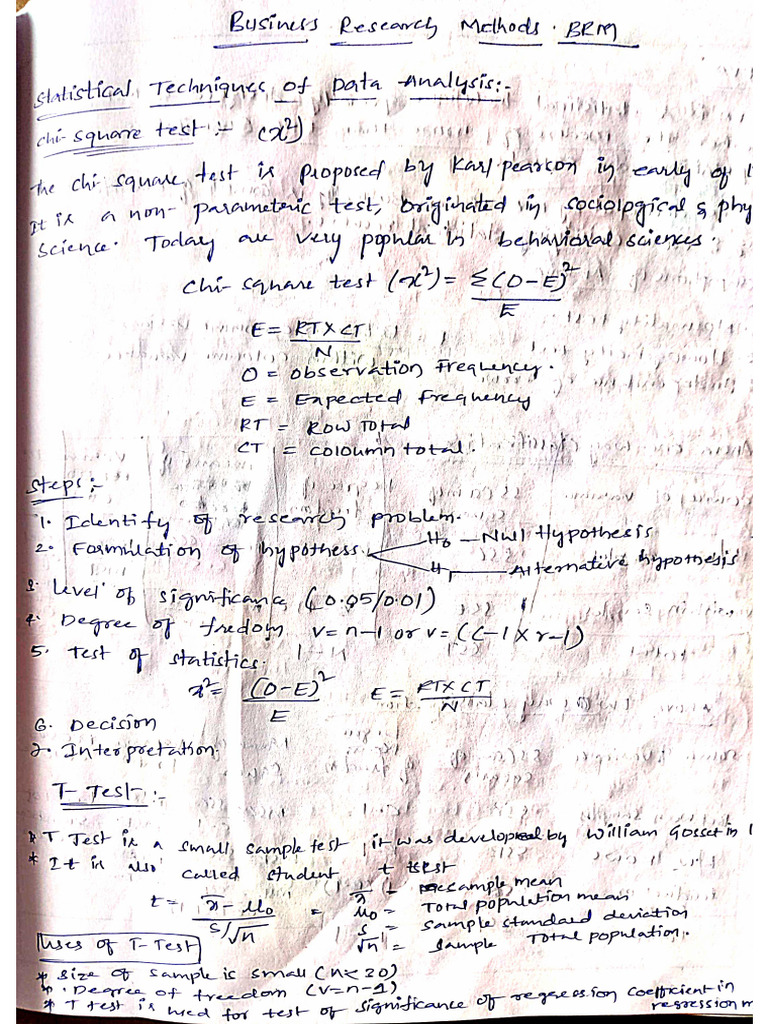 Business Research Methods. BRM
Statistical Techniques of Data Analysis:-
chi-square test :- (x²)
the chi square test is proposed by Karl pearson in early of 1
It is a non-parametric test, originated in sociological & phy
science. Today are very popular in behavioral sciences.
chi-square test (x²) = Σ(O-E)²
E
E = RT X CT
N
O = observation Frequency.
E = Expected frequency
RT = Row Total
CT = coloumn total.
Steps:-
1. Identify of research problem.
2. Formulation of hypothess. H0 — Null Hypothesis
H1 — Alternative hypothesis
3. Level of significance (0.05/0.01)
4. Degree of fredom v=n-1 or v=(C-1 X r-1)
5. Test of statistics.
x² = (O-E)² E = RTX CT
E N
6. Decision
7. Interpretation.
T-Test:-
* T Test is a small sample test, it was developed by William Gosset in 1
* It is also called student t test
t = x̄-μ0 = x̄ = sample mean
s/√n μ0 = Total population mean
s = sample standard deviation
√n = sample Total population.
Uses of T-Test
* size of sample is small (n<20)
* Degree of freedom (v=n-1)
* T test is used for test of significance of regression coefficient in
regression m